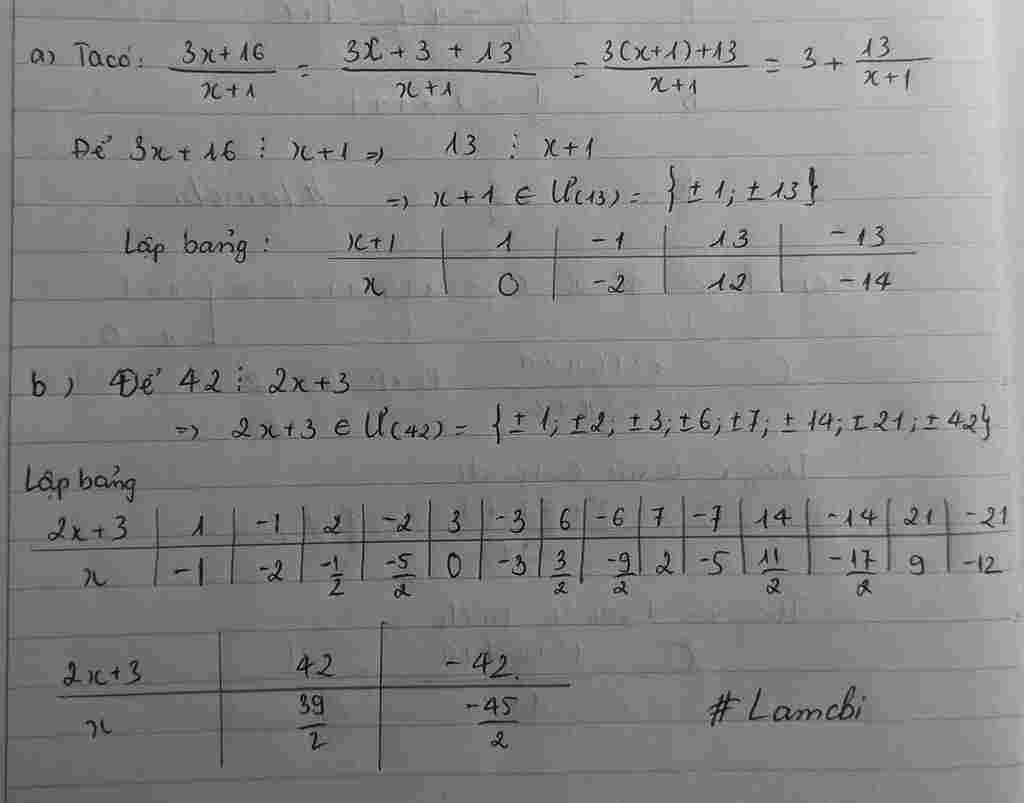 a) Ta có: (3x+16)/(x+1) = (3x+3+13)/(x+1) = (3(x+1)+13)/(x+1) = 3 + 13/(x+1)
Để 3x+16 ⋮ x+1 => 13 ⋮ x+1
=> x+1 ∈ Ư(13) = {±1; ±13}
Lập bảng: x+1 | 1 | -1 | 13 | -13
x | 0 | -2 | 12 | -14
b) Để 42 ⋮ 2x+3
=> 2x+3 ∈ Ư(42) = {±1; ±2; ±3; ±6; ±7; ±14; ±21; ±42}
Lập bảng
2x+3 | 1 | -1 | 2 | -2 | 3 | -3 | 6 | -6 | 7 | -7 | 14 | -14 | 21 | -21
x | -1 | -2 | -1/2 | -5/2 | 0 | -3 | 3/2 | -9/2 | 2 | -5 | 11/2 | -17/2 | 9 | -12
2x+3 | 42 | -42.
x | 39/2 | -45/2
# Lamchi